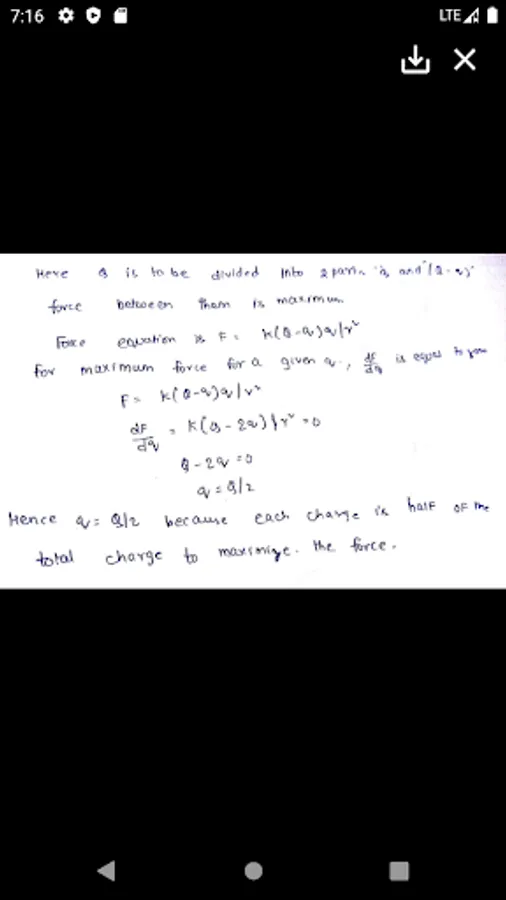 7:16
LTE
Here Q is to be divided into 2 parts "q and "(Q-q)"
force between them is maximum.
Force equation is F = K(Q-q)q/r²
For maximum force for a given q., dF/dq is equal to
F = K(Q-q)q/r²
dF/dq = K(Q-2q)/r² = 0
Q-2q = 0
q = Q/2
Hence q = Q/2 because each charge is half OF the
total charge to maximize. the force.